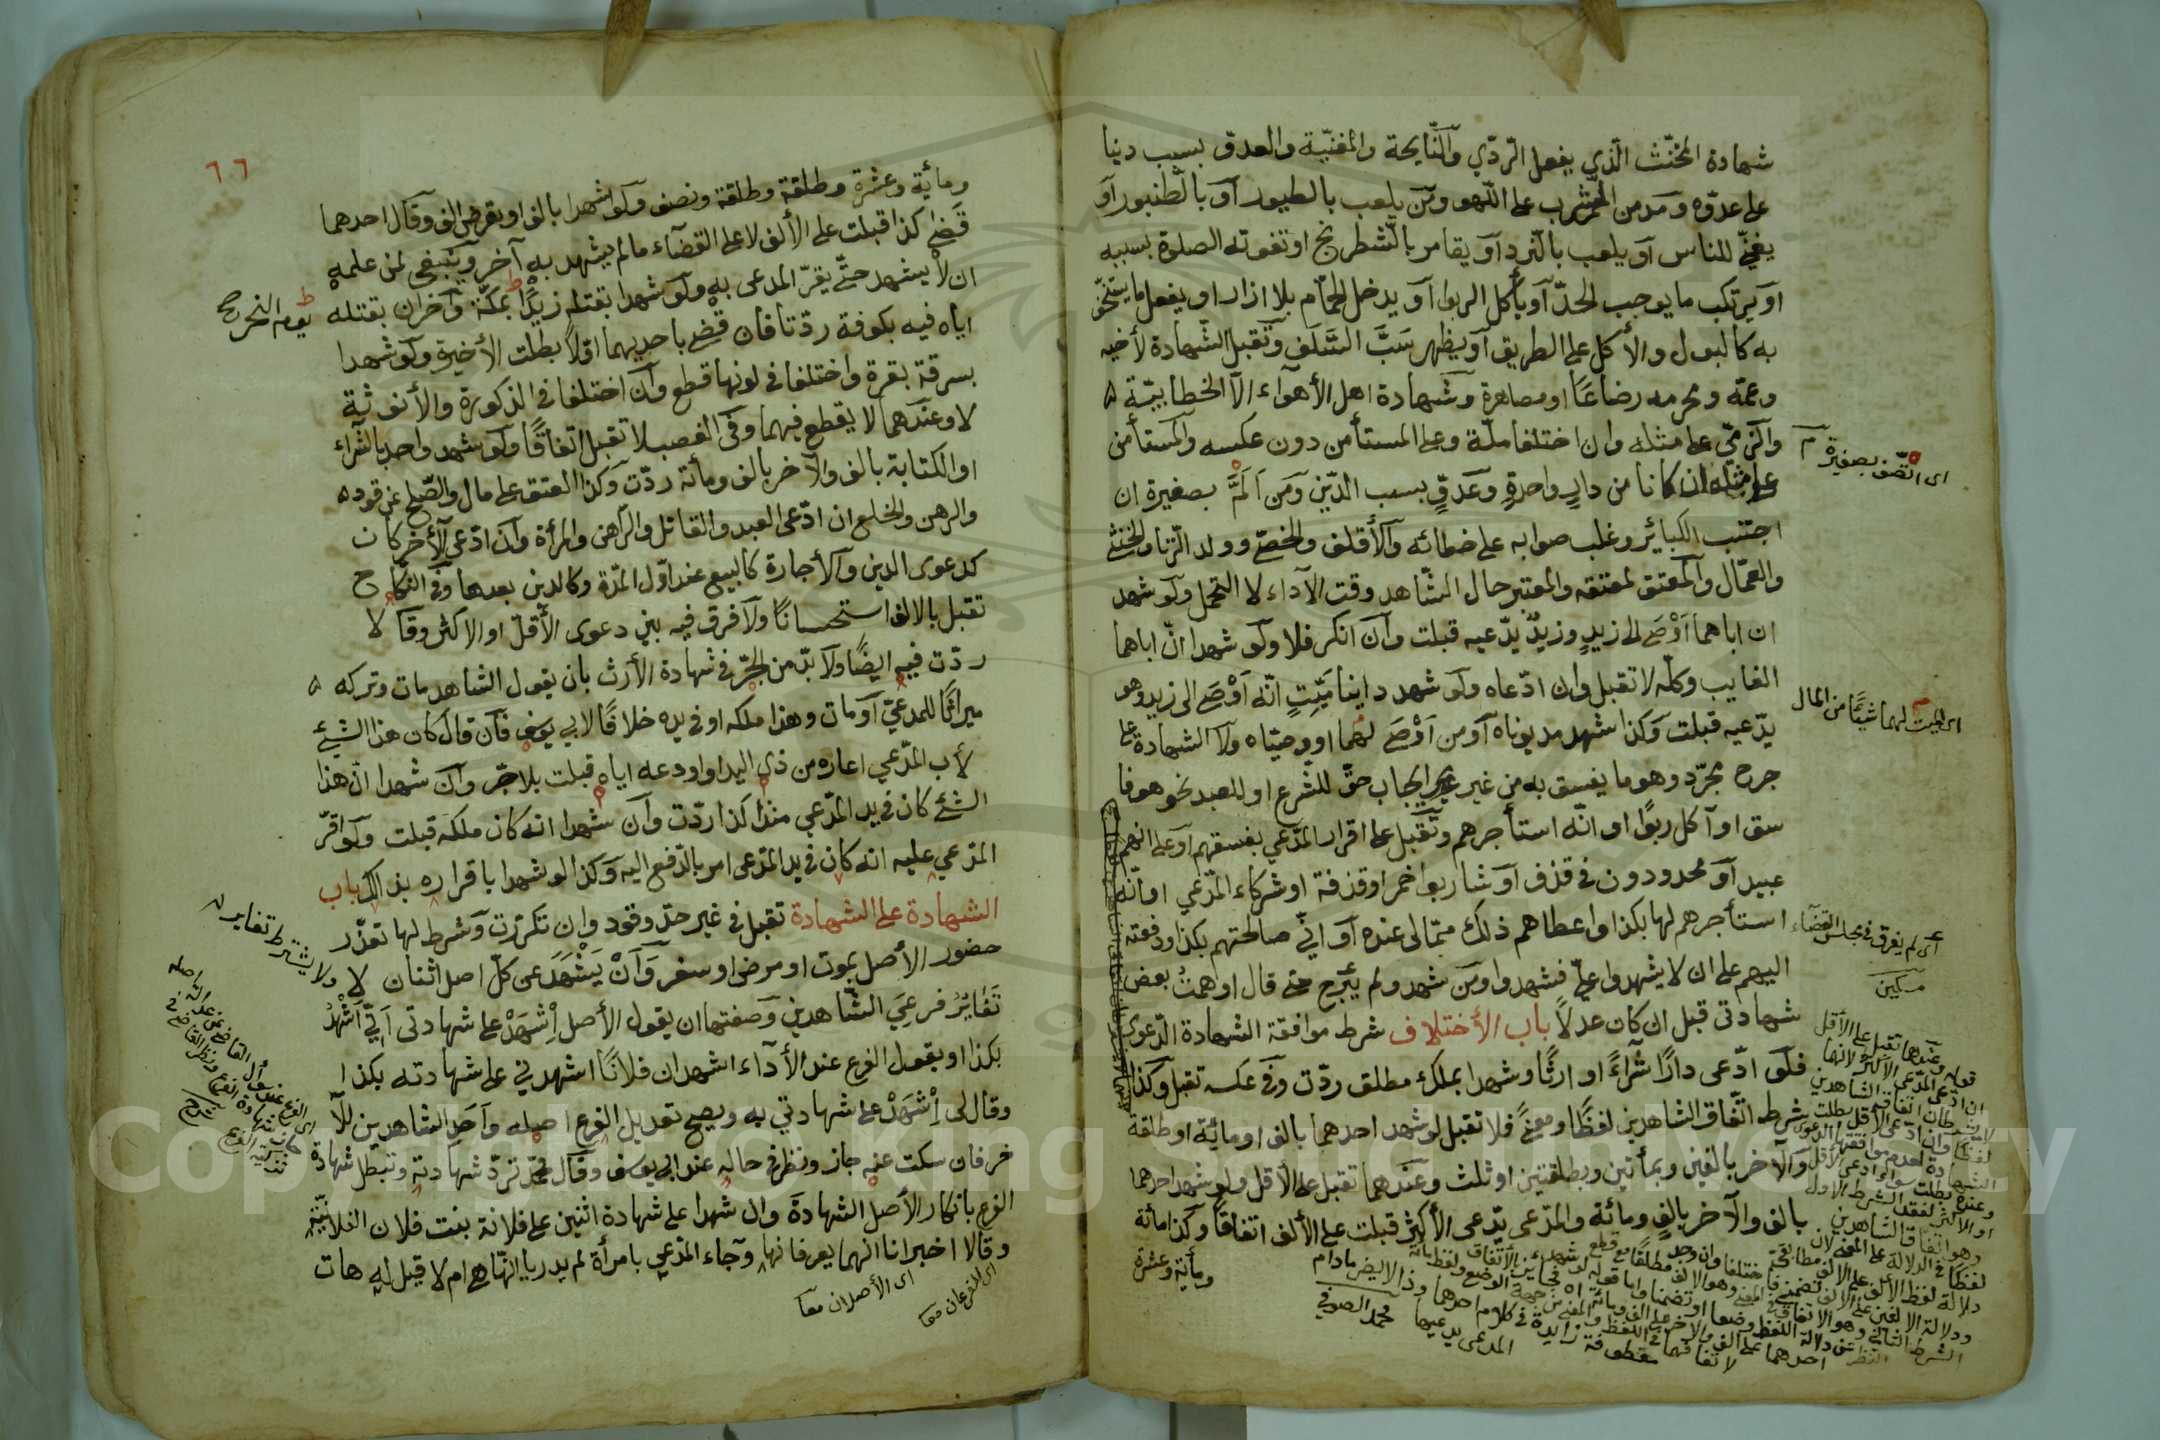 شهادة المخنّث الّذي يفعل الرّدّي والنّايحة والمغنّية والعدوّ بسبب دنيا
على عدوّه ومدمن الشرب على اللّهو ومن يلعب بالطيور أو بالطنبور أو
يغنّي للناس أو يلعب بالنرد أو يقامر بالشطرنج او تفوته الصلوة بسببه
او يرتكب ما يوجب الحدّ أو يأكل الربوا أو يدخل الحمّام بلا ازار او يفعل ما يستخفّ
به كالبول والأكل على الطريق أو يظهر سَبَّ السَّلَف وتقبل الشّهادة لأخيه
وعمّه ومحرمه رضاعًا او مصاهرة وشهادة اهل الأهوآء الّا الخطابيّة
والذّمّي على مثله وان اختلفا ملّة وعلى المستأمن دون عكسه والمستأمن
على مثله ان كانا من دارٍ واحدةٍ وعدوٍّ بسبب الدّين ومن اَلَمَّ بصغيرة ان
اجتنب الكبائر وغلب صوابه على خطائه والأقلف والخصيّ وولد الزّنا والخنثى
والعمّال والمعتق لمعتقه والمعتبر حال الشّاهد وقت الآداء لا التحمل ولو شهد
ان اباهما اَوْصَى الى زيدٍ وزيدٌ يدّعيه قبلت وان انكر فلا ولو شهدا انّ اباهما
الغايب وكلّه لا تقبل وان ادّعاه ولو شهد داينا مَيّتٍ انّه اَوْصَى الى زيد وهو
يدّعيه قبلت وكذا شهد مديوناه أو من اَوْصَى لهما او وصيّاه ولا الشهادة على
جرح مجرّد وهو ما يفسق به من غير ايجاب حقّ للشرع او للعبد نحو هو فا
سق او آكل ربوًا او انّه استأجرهم وتقبل على اقرار المدّعي بفسقهم أو على انهم
عبيد أو محدودون في قذف أو شاربوا خمر او قذفة او شركاء المدّعي او انّه
استأجرهم لها بكذا واعطاهم ذلك ممّا لى عنده أو انّي صالحتهم بكذا ودفعته
اليهم على ان لا يشهدوا عليّ فشهدوا ومن شهد ولم يبرح حتى قال اوهمتُ بعض
شهادتى قبل ان كان عدلاً باب الأختلاف شرط موافقة الشهادة الدّعوى
فلو ادّعى دارًا شرآءً او ارثًا وشهدا بملك مطلق ردّت وفى عكسه تقبل وكذا
شرط اتّفاق الشاهدين لفظًا ومعنىً فلا تقبل لو شهد احدهما بالف او مائة او طلقة
والآخر بالفين وبمأتين وبطلقتين او ثلث وعندهما تقبل على الأقل ولو شهد احدهما
بالف والآخر بالفٍ ومائة والمدّعى يدّعى الأكثر قبلت على الألف اتفاقاً وكذا مائة
ومأية وعشرة
اى اتّصف بصغيرة
اى الميت لهما شيئًا من المال
اى لم يفرق فى مجلس القضآء
مسكين
محمد الصوفي
٦٦
ومأية وعشرة وطلقة وطلقة ونصف ولو شهدا بالف او بقرض الف وقال احدهما
قَضَى كذا قبلت على الألف لا على القضآء مالم يشهد به آخر وينبغى لمن علمه
ان لا يشهد حتّى يقرّ المدعى به ولو شهدا بقتله زيدًا بمكّة وآخران بقتله
اياه فيه بكوفة ردّتا فان قضى باحديهما اوّلاً بطلت الأخيرة ولو شهدا
بسرقة بقرة واختلفا فى لونها قطع وان اختلفا فى الذكورة والأنوثية
لا وعندهما لا يقطع فيهما وفى الغصب لا تقبل اتّفاقًا ولو شهد واحد بالشّراء
او الكتابة بالف والآخر بالف ومأئة ردّت وكذا العتق على مال والصّلح عن قود
والرهن والخلع ان ادّعى العبد والقاتل والرّاهن والمرأة وان ادّعى الآخر كان
كدعوى الدين والأجارة كالبيع عند اوّل المدّة وكالدين بعدها وفى النكاح
تقبل بالالف استحسانًا ولا فرق فيه بين دعوى الأقلّ او الاكثر وقالا
ردّت فيه ايضًا ولا بدّ من الجرّ فى شهادة الأرث بان يقول الشاهد مات وتركه
ميراثًا للمدعيّ أو مات وهذا ملكه او فى يده خلافًا لابي يوسف فان قال كان هذا الشيئ
لأب المدّعي اعاره من ذي اليد او اودعه اياه قبلت بلا جرّ وان شهدا انّ هذا
الشئ كان فى يد المدّعي منذ كذا ردّت وان شهدا انه كان ملكه قبلت ولو اقرّ
المدعي عليه انه كان فى يد المدّعى امر بالدّفع اليه وكذا لو شهدا باقراره بذلك باب
الشهادة على الشهادة تقبل فى غير حدّ وقود وان تكرّرت وشرط لها تعذّر
حضور الأصل بموت او مرض او سفر وان يَشْهَدَ عن كلّ اصل اثنان لا
تَغَايُرُ فرعَيِ الشّاهدين وصفتها ان يقول الأصل اِشْهَدْ على شهادتى اَنّي اَشْهَدُ
بكذا او يقول الفرع عند الأدآء اشهد ان فلانًا اشهدني على شهادته بكذا
وقال لى اِشْهَدْ على شهادتي به ويصح تعديل الفرع اصله وأحد الشاهدين للآ
خر فان سكت عنه جاز ونظر فى حاله عند ابي يوسف وقال محمّد تردّ شهادته وتبطل شهادة
الفرع بانكار الأصل الشهادة وان شهدا على شهادة اثنين على فلانة بنت فلان الفلانيّة
وقالا اخبرانا انهما يعرفانها وجاء المدّعي بامرأة لم يدريا انّها هى ام لا قيل له هات
يوم النحر صح
ولا يشترط تغاير
اى الأصلان معا
اى الفرعان معا
Copyright © King Saud University